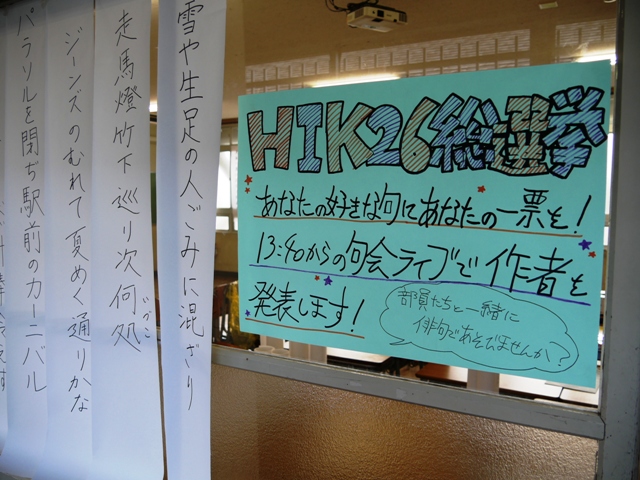 HIK26総選挙
あなたの好きな句にあなたの一票を!
13:40からの句会ライブで作者を
発表します!
部員たちと一緒に
俳句であそびませんか?
雪や生足の人ごみに混ざり
走馬燈竹下巡り次何処
いづこ
ジーンズのむれて夏めく通りかな
パラソルを閉ぢ駅前のカーニバル